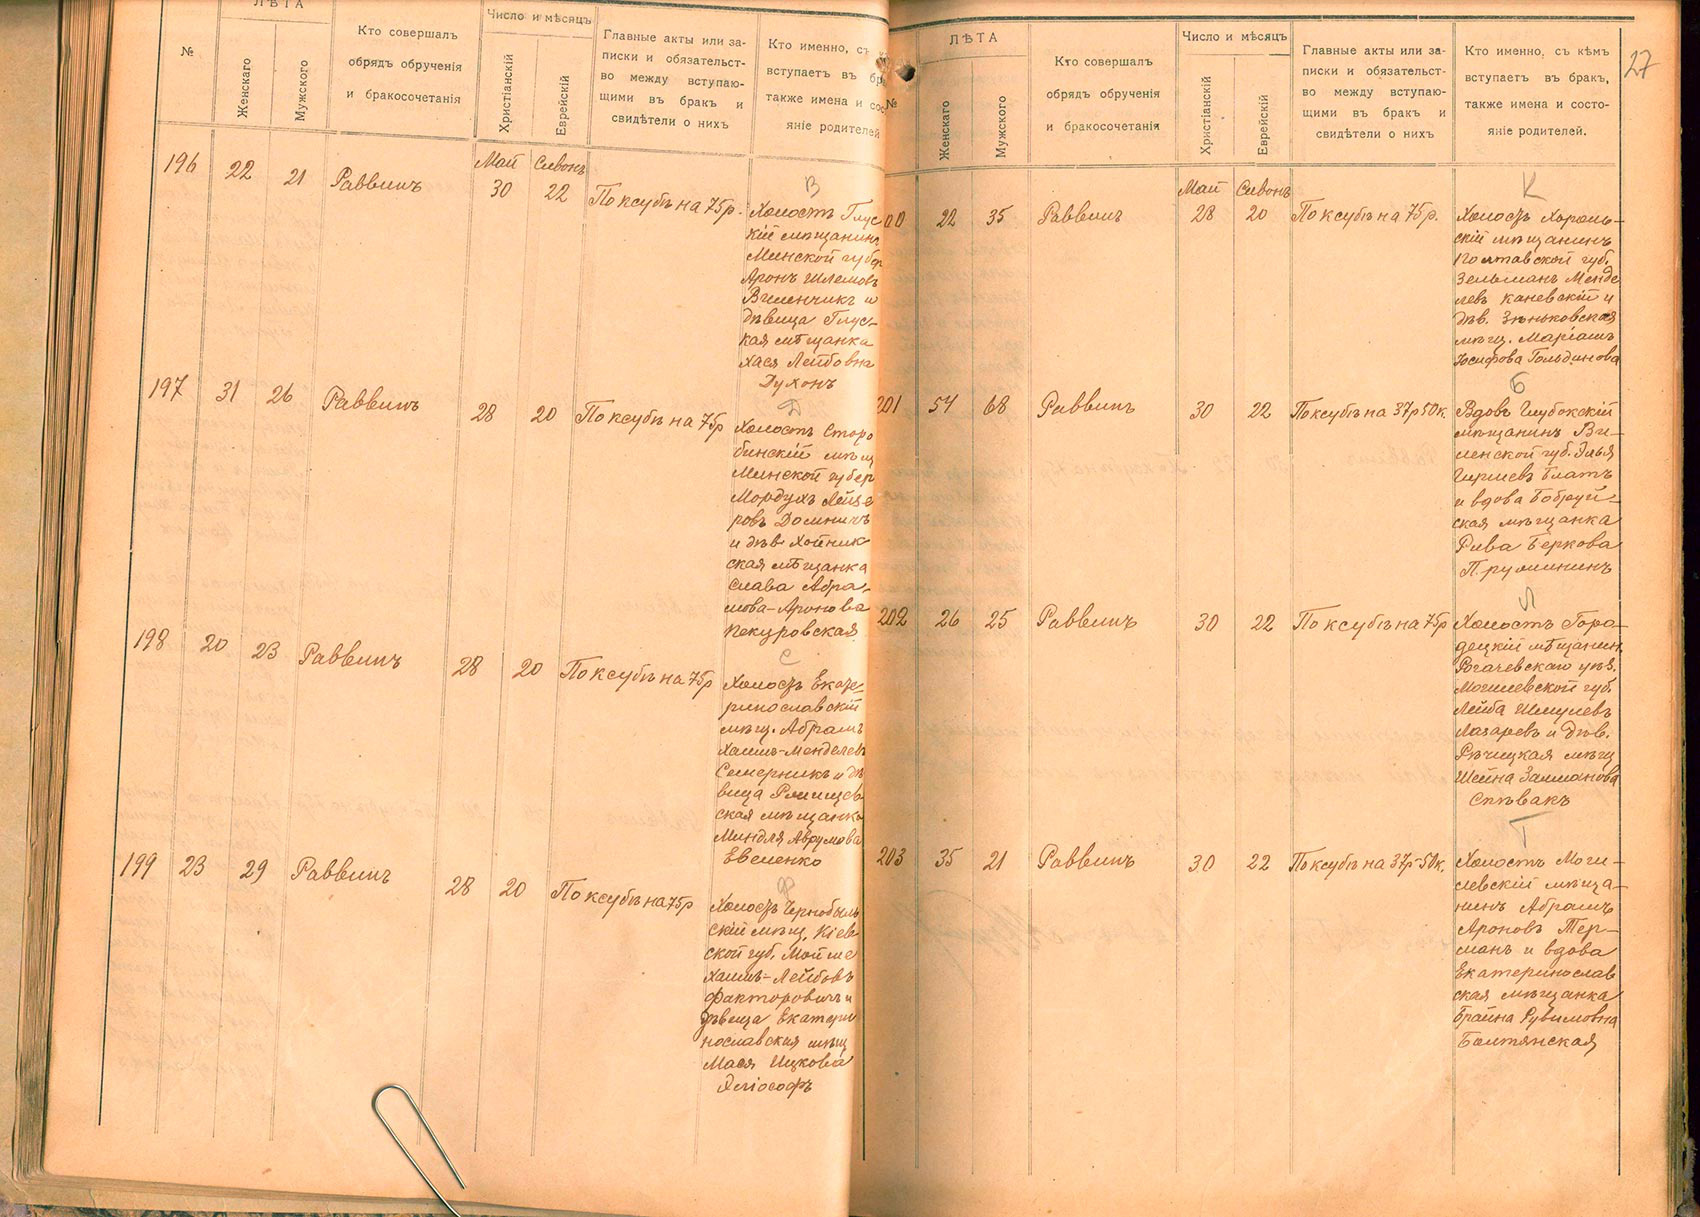 №
ЛѢТА
Женскаго
Мужского
Кто совершалъ
обрядъ обрученія
и бракосочетанія
Число и мѣсяцъ
Христіанскій
Еврейскій
Главные акты или за-
писки и обязательст-
во между вступаю-
щими въ бракъ и
свидѣтели о нихъ
Кто именно, съ
вступаетъ въ бр
также имена и сос
яніе родителей
196 22 21 Раввинъ Май 30 Сивонъ 22 По ксубѣ на 75р.
В
Холостъ Глус
кій мѣщанинъ
Минской губер
Аронъ Шлемовъ
Виленчикъ и
дѣвица Глус-
кая мѣщанка
Хася Лейбовна
Духонъ
197 31 26 Раввинъ 28 20 По ксубѣ на 75р
Д
Холостъ Старо
бинскій мѣщ
Минской губер
Мордухъ Лейзе
ровъ Доминичъ
и дѣв. Хойник
ская мѣщанка
Слава Абра-
мова-Аронова
Пекуровская
198 20 23 Раввинъ 28 20 По ксубѣ на 75р
С
Холостъ Екате-
ринославскій
мѣщ. Абрамъ
Хаимъ-Менделевъ
Семерникъ и дѣ
вица
ская мѣщанка
Миндля Аврумова
Евеленко
199 23 29 Раввинъ 28 20 По ксубѣ на 75р
Ф
Холостъ Чернобыль
скій мѣщ. Кіев
ской губ. Мойше
Хаимъ-Лейбовъ
Факторовичъ и
дѣвица Екатери
нославская мѣщ
Мася Ицкова
№
ЛѢТА
Женскаго
Мужского
Кто совершалъ
обрядъ обрученія
и бракосочетанія
Число и мѣсяцъ
Христіанскій
Еврейскій
Главные акты или за-
писки и обязательст-
во между вступаю-
щими въ бракъ и
свидѣтели о нихъ
Кто именно, съ кѣмъ
вступаетъ въ бракъ,
также имена и состо-
яніе родителей.
27
00 22 35 Раввинъ Май 28 Сивонъ 20 По ксубѣ на 75р.
К
Холостъ Хороль-
скій мѣщанинъ
Полтавской губ.
Зельманъ Менде
левъ Каневскій и
дѣв. Зѣньковская
мѣщ. Маріашъ
Іосифова Гольдинова
201 54 68 Раввинъ 30 22 По ксубѣ на 37р 50к.
Б
Вдовъ Глубокскій
мѣщанинъ Ви-
ленской губ. Элья
Гиршевъ Блатъ
и вдова Бобруй-
ская мѣщанка
Рива Беркова
Пруминин
202 26 25 Раввинъ 30 22 По ксубѣ на 75р
Л
Холостъ Горо-
децкій мѣщанин
Рогачевскаго уѣз.
Могилевской губ.
Лейба Шмуlевъ
Лазаревъ и дѣв.
Рѣчицкая мѣщ
Шейна Залманова
Спѣвакъ
203 35 21 Раввинъ 30 22 По ксубѣ на 37р-50к.
Т
Холостъ Моги-
левскій мѣща-
нинъ Абрамъ
Ароновъ Тер-
манъ и вдова
Екатеринослав
ская мѣщанка
Брайна Рувимовна
Балтянская